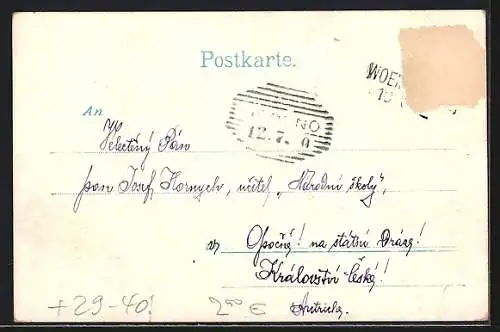 Postkarte.
WOER
An
NO
12.7.
Velectěný Pán
pan Josef Kornych, učitel „Národní školy",
v Opočně! na státní Dráze!
Království České!
Austriche.
+29-40! 2⁰⁰ €